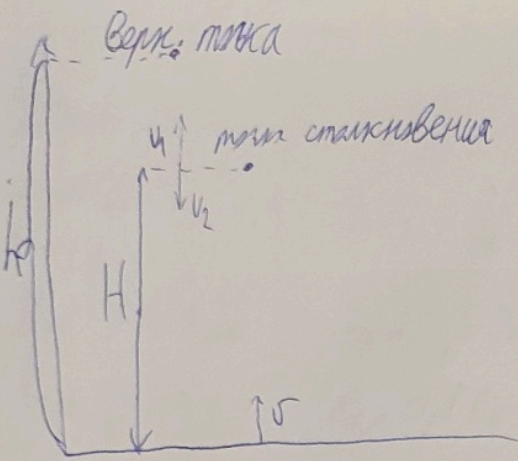 Верх. точка
h₀
v₁
точка столкновения
v₂
H
v